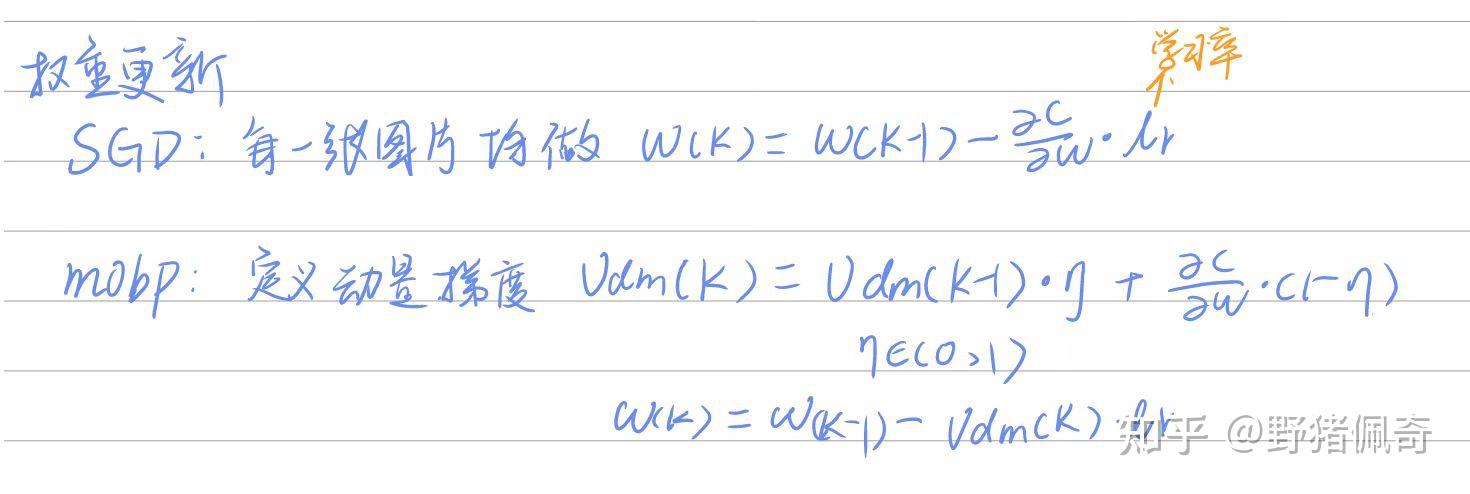 学习率
权重更新
SGD: 每一张图片均做 W(K) = W(K-1) - ∂C/∂W · lr
mobp: 定义动量梯度 Vdm(K) = Vdm(K-1) · η + ∂C/∂W · (1-η)
η∈(0,1)
W(K) = W(K-1) - Vdm(K) · lr
知乎 @野猪佩奇